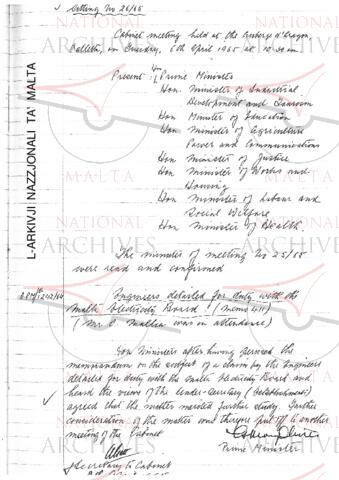 Sitting No 26/65
Cabinet meeting held at the Auberge d'Aragon,
Valletta, on Tuesday, 6th April 1965 at 10.30 am
Present: Hon Prime Minister
Hon. Minister of Industrial
Development and Tourism
Hon Minister of Education
Hon Minister of Agriculture
Power and Communications
Hon Minister of Justice
Hon Minister of Works and
Housing
Hon Minister of Labour and
Social Welfare
Hon Minister of Health
The minutes of meeting No 25/65
were read and confirmed
Engineers detailed for duty with the
Malta Electricity Board (memo 411)
(Mr was in attendance)
Hon Ministers after having perused the
memorandum on the subject of a claim by the Engineers
detailed for duty with the Malta Electricity Board and
heard the views of the Under-Secretary (Establishments)
agreed that the matter merited further study. Further
consideration of the matter was therefore put off to another
meeting of the Cabinet
Prime Minister
Secretary to Cabinet
L-ARKIVJI NAZZJONALI TA' MALTA
NATIONAL ARCHIVES
MALTA